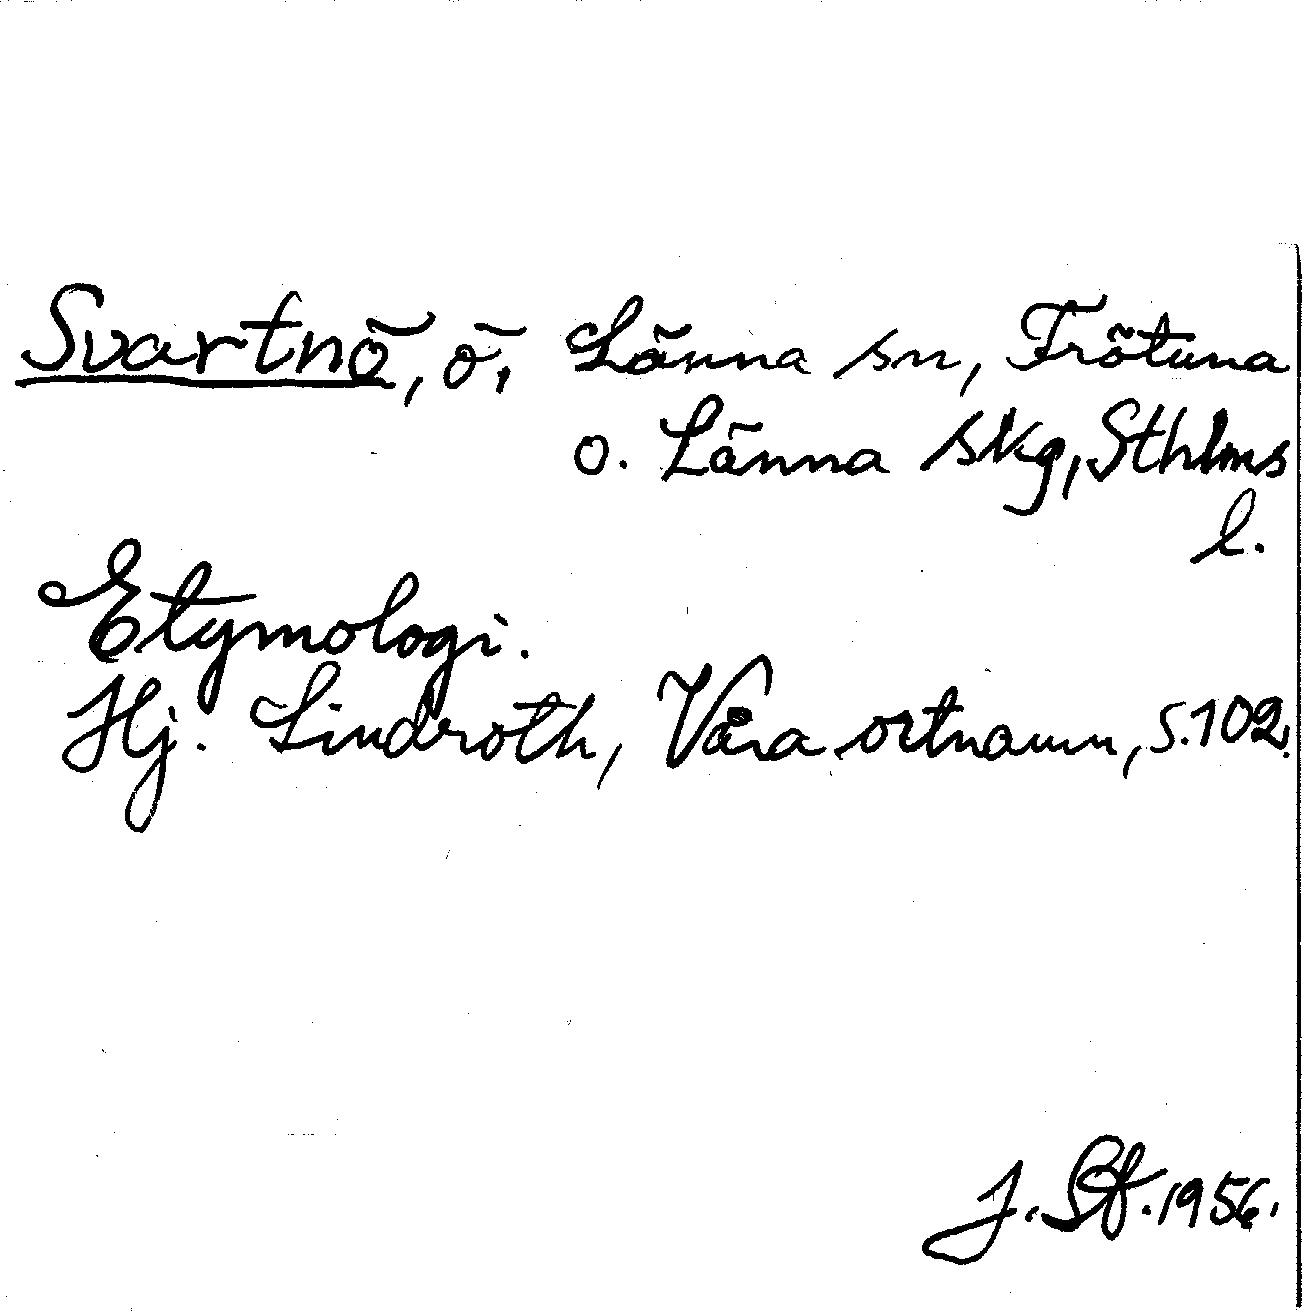 Svartnö, ö, Länna sn, Frötuna
o. Länna skg, Sthlms
l.
Etymologi.
Hj. Lindroth, Våra ortnamn, s. 102.
J. 1956.